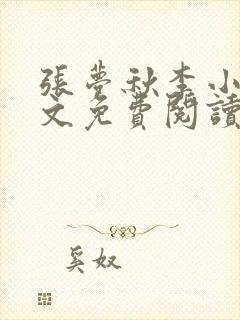 張夢秋李小
文免費閱讀
奚奴